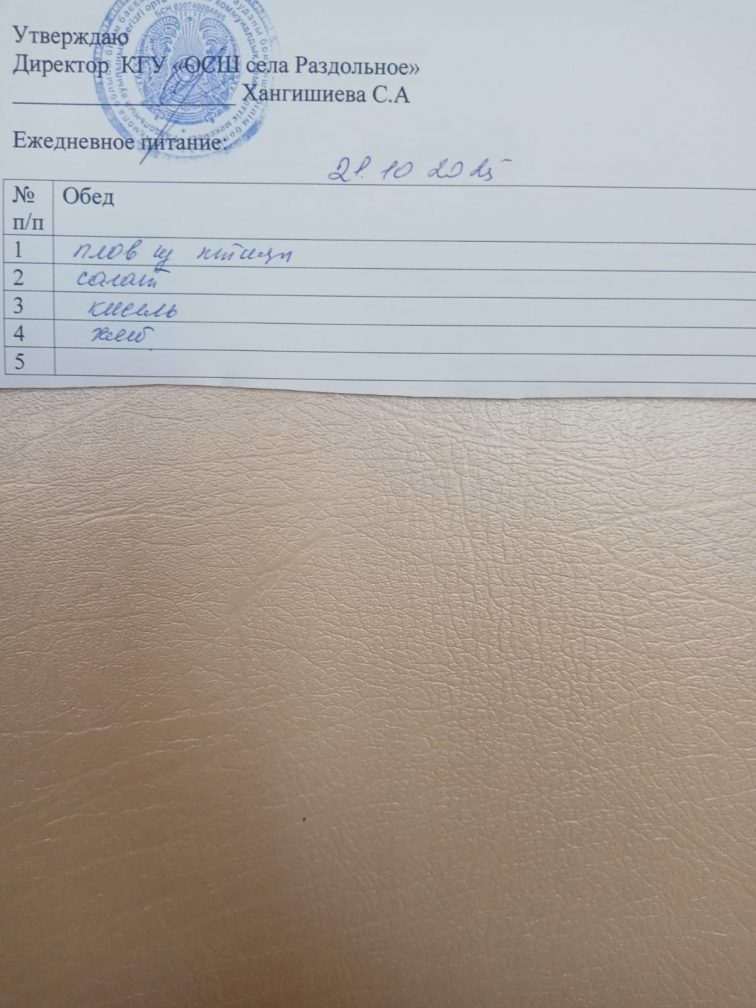 Утверждаю
Директор КГУ «ОСШ села Раздольное»
Хангишиева С.А
Ежедневное питание:
21.10 2025
№ п/п Обед
1 плов из птицы
2 салат
3 кисель
4 хлеб
5